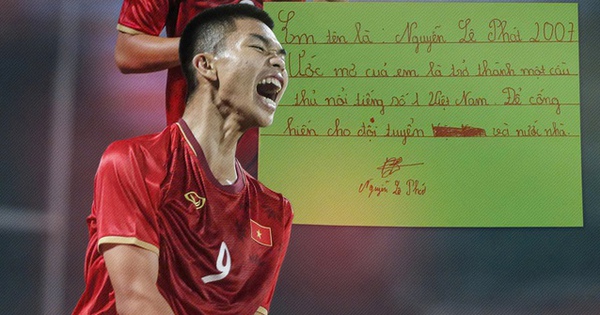 Em tên là : Nguyễn Lê Phát 2007
Ước mơ của em là trở thành một cầu
thủ nổi tiếng số 1 Việt Nam. Để cống
hiến cho đội tuyển và nước nhà.
Nguyễn Lê Phát
9